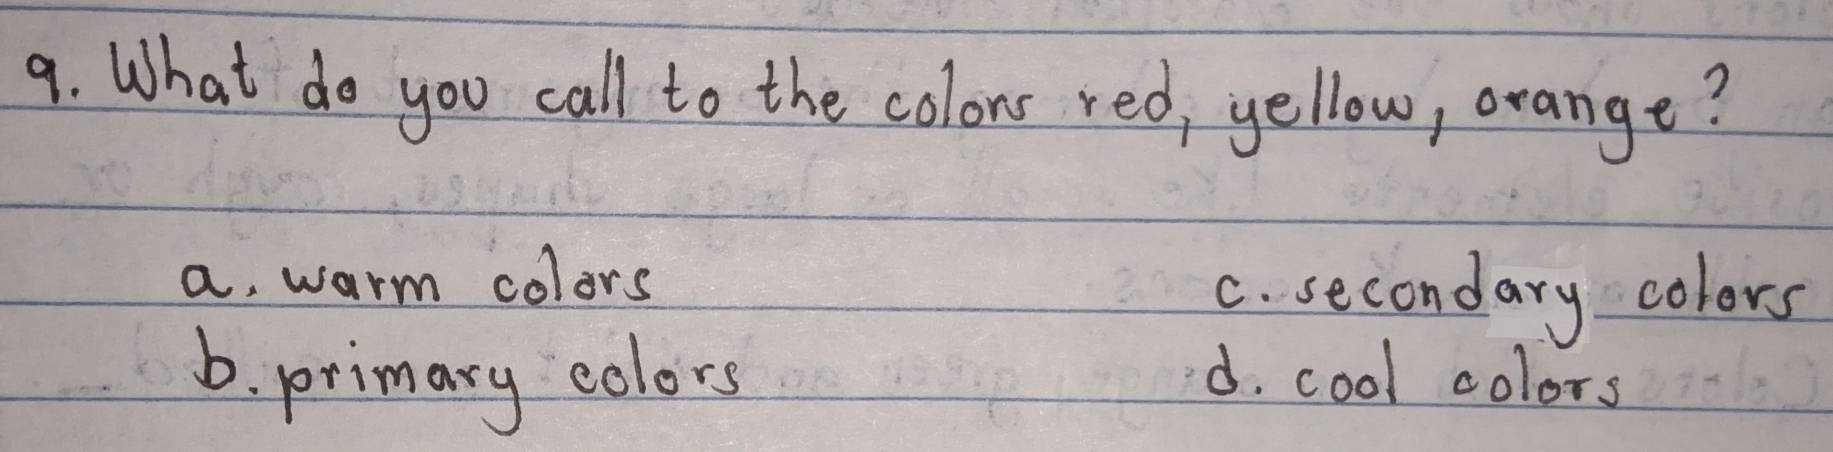 9. What do you call to the colors red, yellow, orange?
a. warm colors c. secondary colors
b. primary colors d. cool colors